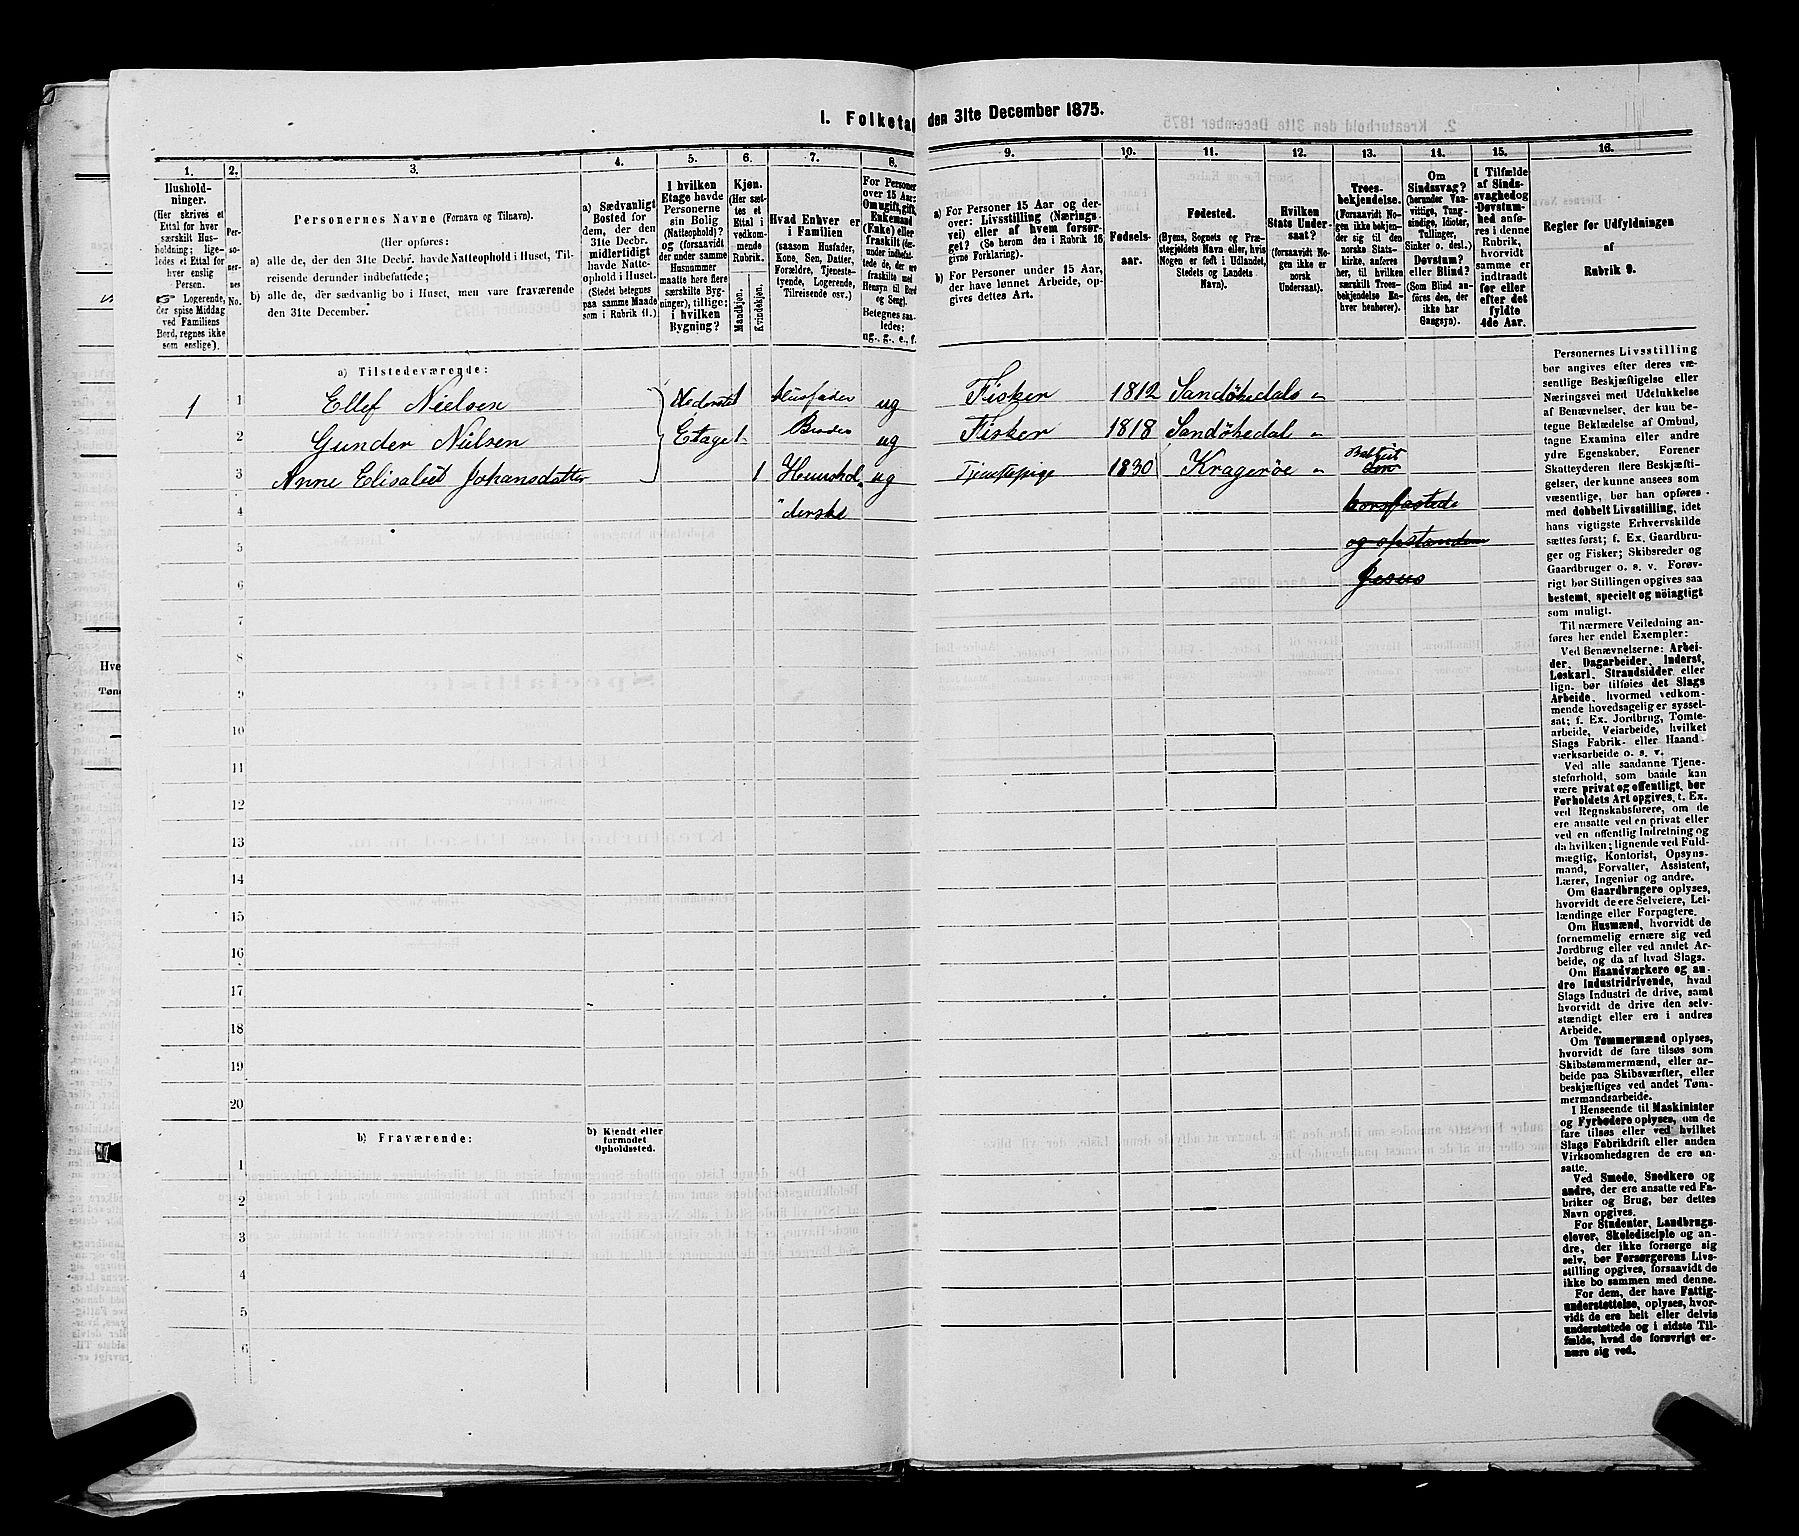 1. Folketal den 31te December 1875.
1.
2.
3.
4.
5.
6.
7.
8.
9.
10.
11.
12.
13.
14.
15.
16.
Hushold-
ninger.
(Her skrives et
Ettal for hver
særskilt Hus-
holdning; lige-
ledes et Ettal for
hver enslig
Person.
Logerende,
der spise Middag
ved Familiens
Bord, regnes ikke
som enslige).
Per-
so-
ner-
nes
No.
Personernes Navne (Fornavn og Tilnavn).
(Her opføres:
a) alle de, der den 31te Decbr. havde Natteophold i Huset, Til-
reisende derunder indbefattede;
b) alle de, der sædvanlig bo i Huset, men vare fraværende
den 31te December.
a) Sædvanligt
Bosted for
dem, der den
31te Decbr.
midlertidigt
havde Natte-
ophold i Huset.
(Stedet betegnes
paa samme Maade
som i Rubrik 11.)
I hvilken
Etage havde
Personerne
sin Bolig
(Natteophold)?
og (forsaavidt
der under samme
Husnummer
maatte høre flere
særskilte Byg-
ninger), tillige:
i hvilken
Bygning?
Kjøn.
(Her sæt-
tes et
Ettal i
vedkom-
mende
Rubrik.
Mandkjøn.
Kvindekjøn.
Hvad Enhver er
i Familien
(saasom Husfader,
Kone, Søn, Datter,
Forældre, Tjeneste-
tyende, Logerende,
Tilreisende osv.)
For Personer
over 15 Aar:
Om ugift, gift,
Enkemand
(Enke) eller
fraskilt (der-
under indbefat-
tede de, der ere
fraskilte med
Hensyn til Bord
og Seng).
Betegnes saa-
ledes:
ug., g., e., f.
a) For Personer 15 Aar og der-
over: Livsstilling (Nærings-
vei) eller af hvem forsør-
get? (Se herom den i Rubrik 16
givne Forklaring).
b) For Personer under 15 Aar,
der have lønnet Arbeide, op-
gives dettes Art.
Fødsels-
aar.
Fødested.
(Byens, Sognets og Præ-
stegjeldets Navn eller, hvis
Nogen er født i Udlandet,
Stedets og Landets
Navn).
Hvilken
Stats Under-
saat?
(forsaavidt No-
gen ikke er
norsk
Undersaat).
Troes-
bekjendelse.
(Forsaavidt No-
gen ikke bekjen-
der sig til den
norske Stats-
kirke, anføres
her, til hvilken
særskilt Troes-
bekjendelse En-
hver henhører).
Om
Sindssvag?
(herunder Van-
vittige, Tung-
sindige, Idioter,
Tullinger,
Sinker o. desl.)
Døvstum?
eller Blind?
(Som Blind an-
føres den, der
ikke har
Gangsyn).
I Tilfælde
af Sinds-
svaghed og
Døvstum-
hed anfø-
res i denne
Rubrik,
hvorvidt
samme er
indtraadt
før eller
efter det
fyldte
4de Aar.
Regler for Udfyldningen
af
Rubrik 9.
a) Tilstedeværende:
1 1 Ellef Nielsen Nederste 1 Husfader ug Fisker 1812 Sandøkedal "
2 Gunder Nielsen Etage 1 Broder ug Fisker 1818 Sandøkedal "
3 Anne Elisabet Johansdatter 1 Hushol- ug Tjenestepige 1830 Kragerøe " Baptist
den
4 "derske korsfæstede
5 og opstandene
6 Jesus
7
8
9
10
11
12
13
14
15
16
17
18
19
20
b) Fraværende:
b) Kjendt eller
formodet
Opholdssted.
1
2
3
4
5
6
Personernes Livsstilling
bør angives efter deres væ-
sentlige Beskjæftigelse eller
Næringsvei med Udelukkelse
af Benævnelser, der kun be-
tegne Beklædelse af Ombud,
tagne Examina eller andre
ydre Egenskaber. Forener
Skatteyderen flere Beskjæfti-
gelser, der kunne ansees som
væsentlige, bør han opføres
med dobbelt Livsstilling, idet
hans vigtigste Erhvervskilde
sættes først; f. Ex. Gaardbru-
ger og Fisker; Skibsreder og
Gaardbruger o. s. v. Forøv-
rigt bør Stillingen opgives saa
bestemt, specielt og nöiagtigt
som muligt.
Til nærmere Veiledning an-
føres her endel Exempler:
Ved Benævnelserne: Arbei-
der, Dagarbeider, Inderst,
Løskarl, Strandsidder eller
lign. bør tilføies det Slags
Arbeide, hvormed vedkom-
mende hovedsagelig er syssel-
sat; f. Ex. Jordbrug, Tomte-
arbeide, Veiarbeide, hvilket
Slags Fabrik- eller Haand-
værksarbeide o. s. v.
Ved alle saadanne Tjene-
steforhold, som baade kan
være privat og offentligt, bør
Forholdets Art opgives, t. Ex.
ved Regnskabsførere, om de
ere ansatte ved en privat eller
ved en offentlig Indretning og
da hvilken; lignende ved Fuld-
mægtig, Kontorist, Opsyns-
mand, Forvalter, Assistent,
Lærer, Ingeniør og andre.
Om Gaardbrugere oplyses,
hvorvidt de ere Selveiere, Lei-
lændinge eller Forpagtere.
Om Husmænd, hvorvidt de
fornemmelig ernære sig ved
Jordbrug eller ved andet Ar-
beide, og da af hvad Slags.
Om Haandværkere og an-
dre Industridrivende, hvad
Slags Industri de drive, samt
hvorvidt de drive den selv-
stændigt eller ere i andres
Arbeide.
Om Tømmermænd oplyses,
hvorvidt de fare tilsøs som
Skibstømmermænd, eller ar-
beide paa Skibsværfter, eller
beskjæftiges ved andet Tøm-
mermandsarbeide.
I Henseende til Maskinister
og Fyrbødere oplyses, om de
fare tilsøs eller ved hvilket
Slags Fabrikdrift eller anden
Virksomhedsgren de ere an-
satte.
Ved Smede, Snedkere og
andre, der ere ansatte ved Fa-
briker og Brug, bør dettes
Navn opgives.
For Studenter, Landbrugs-
elever, Skoledisciple og an-
dre, der ikke forsørge sig
selv, bør Forsørgerens Livs-
stilling opgives, forsaavidt de
ikke bo sammen med denne.
For dem, der have Fattig-
understøttelse, oplyses, hvor-
vidt de ere helt eller delvis
understøttede og i sidste Til-
fælde, hvad de forøvrigt er-
nære sig ved.